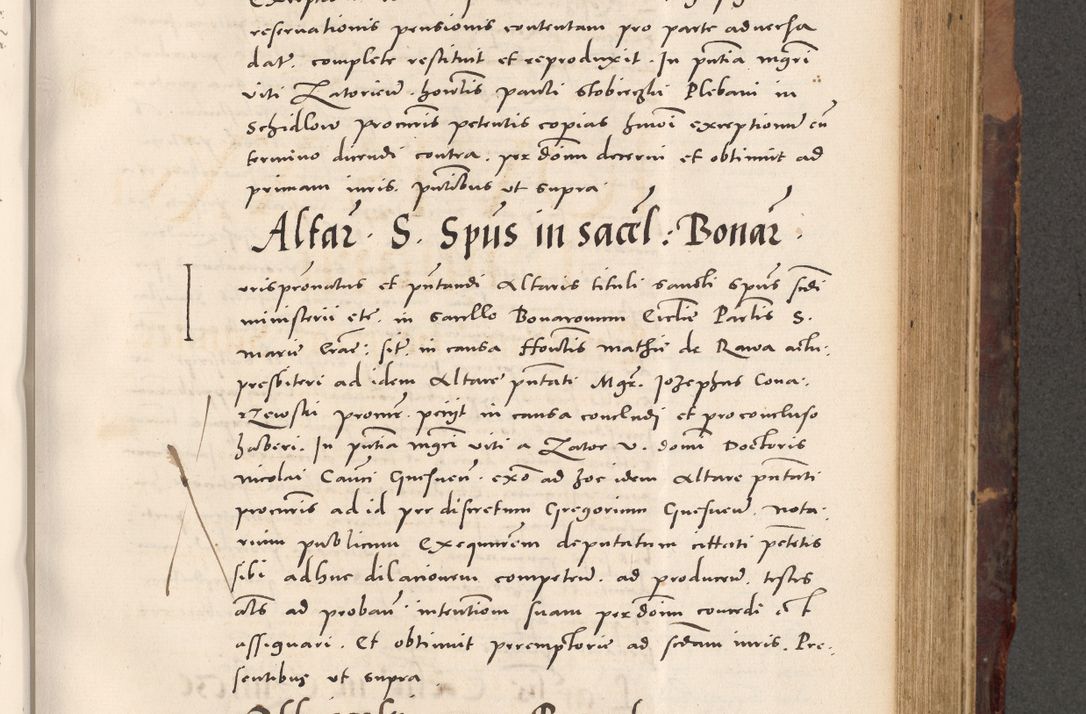 reservationis pensionis contentam pro parte adversa
dat. complete restituit et reproduxit. In pntia mgri
viti Zatoricen. honstis pauli Stobieczki Plebani in
Schidlow procuris petentis copias hmoi exceptionum cu
termino dicendi contra. per dom decerni et obtinuit ad
primam iuris. pntibus ut supra
Altar. S. Spus in sacel: Bonar.
urispronatus et pntandi Altaris tituli sancti Spus sedi
ministerii etc. in sacello Bonaronum Ecclie Parlis S.
marie Crac: site. in causa Honstis mathie de Rawa actu:
presbiteri ad idem Altare pntati Mgr. Josephus Cona:
rzewski procur. petijt in causa concludi et pro concluso
haberi. In pntia mgri viti a Zator v. domi Doctoris
nicolai Canci Gnesnen. exo ad hoc idem Altare pntati
procuris ad id per discretum Gregorium Gnesnen. nota:
rium publicum Exequutem deputatum cittati petetis
sibi adhuc dilacionem competen. ad producen. testes
als ad proban. intentiom suam per dom concedi et
assignari. Et obtinuit peremptorie ad sedam iuris. Pre:
sentibus ut supra